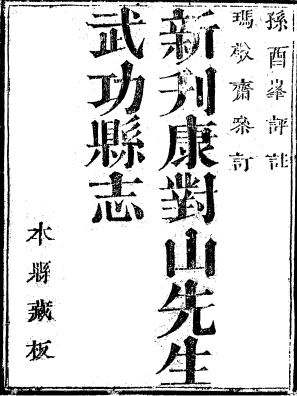 孫酉峯評註
瑪齋叅訂
新刋康對山先生
武功縣志
本縣藏板